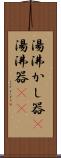 湯沸かし器
湯沸器